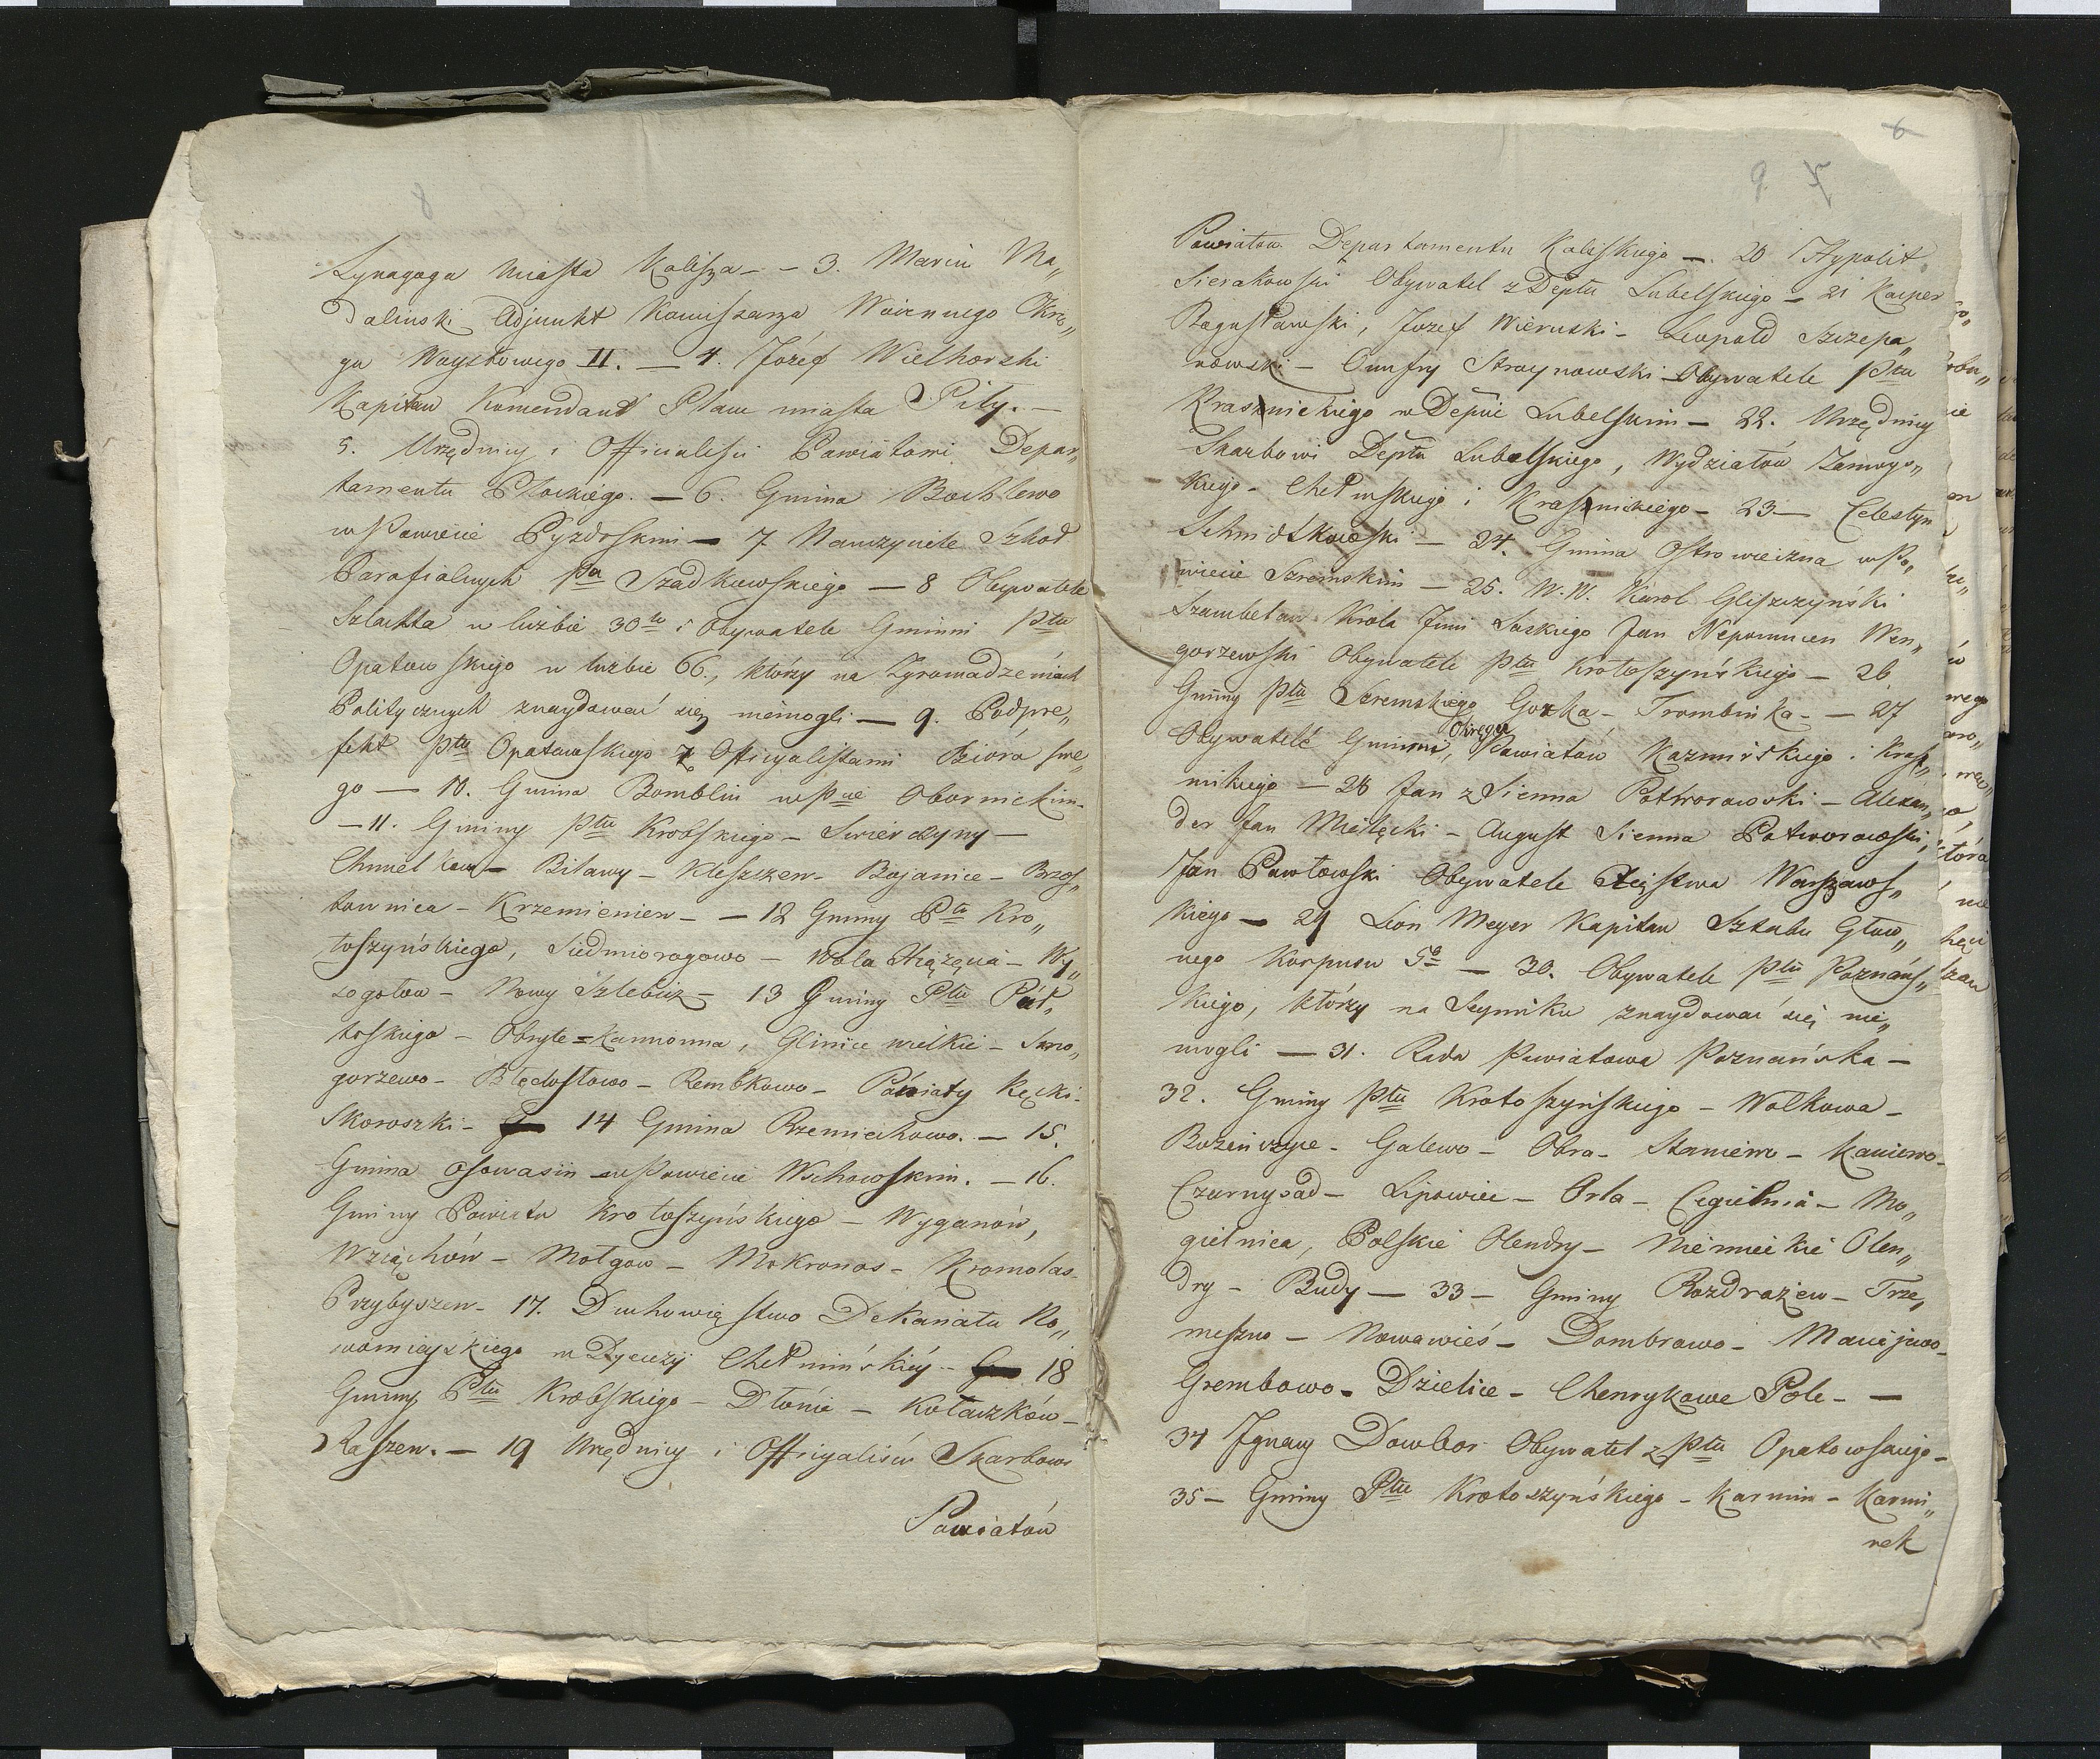 8
Synagoga Miasta Kalisza - - 3. Marcin Ma„
daliński Adjunkt Komisarza Woiennego Okrę„
gu Woyskowego II. — 4. Józef Wielhorski
Kapitan Komendant Placu miasta Piły. —
5. Urzędnicy i Officialiści Powiatowi Depar„
tamentu Płockiego. — 6. Gmina Bochlewo
w Powiecie Pyzdrskim — 7 Nauczyciele Szkod
Parafialnych Ptu Szadkowskiego — 8 Obywatele
Szlachta w liczbie 30tu i Obywatele Gminni Ptu
Opatowskiego w liczbie 66., którzy na Zgromadzeniach
Politycznych znaydować się niemogli — 9. Podpre„
fekt Ptu Opatowskiego z Officyalistami Bióra swe„
go — 10. Gmina Bomblin w Pcie Obornickim -
— 11. Gminy Ptu Krobskiego - Swierczyny —
Chumiętkow - Bitawy - Kleszczew - Bojanice - Brzos„
townica - Krzemieniew - — 12 Gminy Ptu Kro„
toszyńskiego, Siedmiorogowo — Wola Xiążęca - Wy„
sogotow - Nowy Szlebiuz - 13 Gminy Ptu Puł„
toskiego - Obryte = Kamionna, Glinice wielkie - Smo„
gorzewo - Błędostowo - Rembkowo - Powiaty Kęcki -
Skoroszki - 14 Gmina Rzemiechowo. — 15.
Gmina Osowasin w Powiecie Wschowskim. — 16.
Gminy Powiatu Krotoszyńskiego — Wyganów,
Wziąchów - Małgow - Mokronos - Kromolas -
Przybyszew - 17. Duchowięstwo Dekanatu No„
womieyskiego w Dyecezyi Chełmińskiéy - 18
Gminy Ptu Krobskiego - Dłonie - Kołaczków -
Raszew. — 19 Urzędnicy i Offícyaliści Skarbowi
Powiatów
6
9 5
Powiatów Departamentu Kaliskiego —. 20 Hypolit
Sierakowski Obywatel z Deptu Lubelskiego — 21 Kacper
Bogusławski, Jozef Wieruski - Leopold Szczepa„
nowski — Onufry Stroynowski - Obywatele Ptu
Krasnickiego w Depcie Lubelskim — 22. Urzędnicy
Skarbowi Deptu Lubelskiego, Wydziatów Zamoys„
kiego - Chełmskiego i Krasnickiego - 23 — Celestyn
Schmidtkowski — 24. Gmina Ostrowieczna w Po„
wiecie Szremskim — 25. W. W. Karol Gliszczyński
Szambelan Krola Jmci Saskiego Jan Nepomucen Wen„
gorzewski Obywatele Ptu Krotoszyńskiego — 26
Gminy Ptu Szremskiego Gorka - Trombinka - — 27
Okręgu
Obywatele Gminni, Powiatów Kazmirskiego i Kras„
nickiego — 28 Jan z Sienna Potworowski — Alexan„
der Jan Mielęcki — August Sienna Potworowski,
Jan Pawłowski Obywatele Xięstwa Warszaws„
kiego — 29 Leon Meyer Kapitan Sztabu Głow„
nego Korpusu 5o — 30. Obywatele Ptu Poznańs„
kiego, którzy na Seymiku znaydować się nie„
mogli — 31. Rada Powiatowa Poznańska —
32. Gminy Ptu Krotoszyńskiego — Wolkowa -
Bozeńczyce - Galewo - Obra - Staniew - Kaniewo -
Czarnysad - Lipowiec - Orla - Cegielnia - Mo„
gielnica, Polskie Olendry - Niemieckie Olen„
dry - Budy — 33 — Gminy Rozdrażew - Trze„
meszno - Nowawieś - Dombrowo - Maciejewo -
Grembowo - Dzielice - Chenrykowe Pole - —
34 Ignacy Dowbor Obywatel z Ptu Opatowskiego -
35 — Gminy Ptu Krotoszyńskiego - Karmin - Karmi„
nek